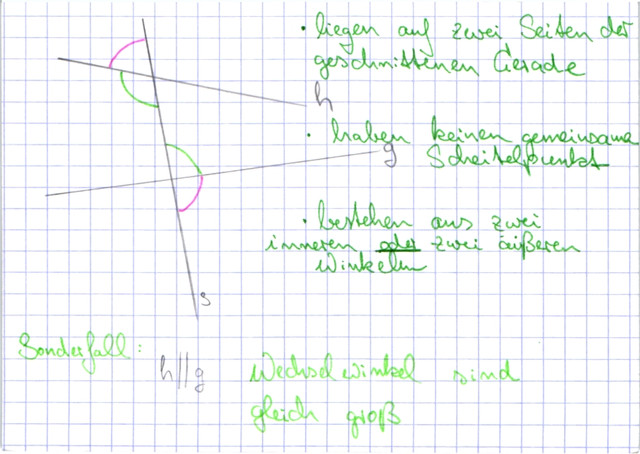 • liegen auf zwei Seiten der
geschnittenen Gerade
h
• haben keinen gemeinsame
g
Scheitelpunkt
• bestehen aus zwei
inneren oder zwei äußeren
Winkeln
s
Sonderfall:
h||g Wechselwinkel sind
gleich groß